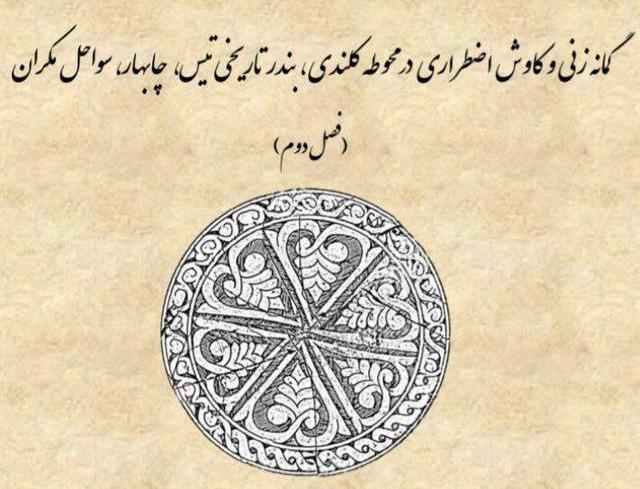 گمانه زنی و کاوش اضطراری در محوطه کلندی، بندر تاریخی تیس، چابهار، سواحل مکران
(فصل دوم)